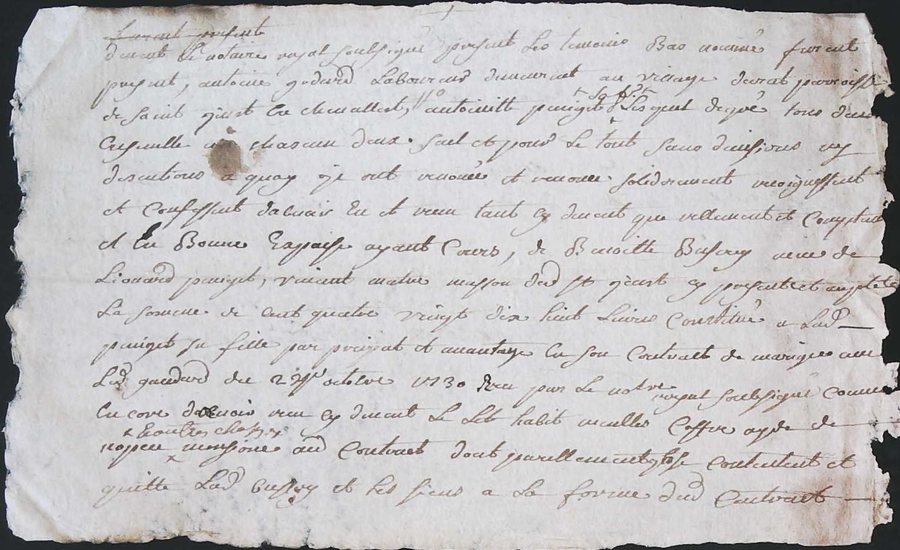 furent présent
devant le notaire royal soussigné présent les temoins Bas nommé furent
present, antoine godard Laboureur demeurant au village durat parroisse
de saint just En chevallet, antoinette puniget sa ft Lesquel de gré tous deux
Ensemble un chascun deux seul et pour Le tout sans divisions ny
discutions a quoy ont renoncé et renonce solidairement
et Confessent davoir Eu et reçu tant cy devant que réellement et Comptant
et En Bonne Espaise ayant Cours, de Benoitte Bussery veuve de
Lionard puniget, vivant maitre masson dud st just cy présente et acceptte
La somme de cent quatre vingt dix huit Livres Constitué a Lad
puniget sa fille par preciput et avantage En son Contrat de mariage avec
Led godard du octobre 1730 Reçu par Le notre royal soussigné Comme
Encore davoir reçu cy devant Le Lit habit meubles Coffre
x Et autres choses x
mensioné aud Contrat dont pareillement Contentent et
quitte Lad Bussery et Les siens a La forme dud Contrast